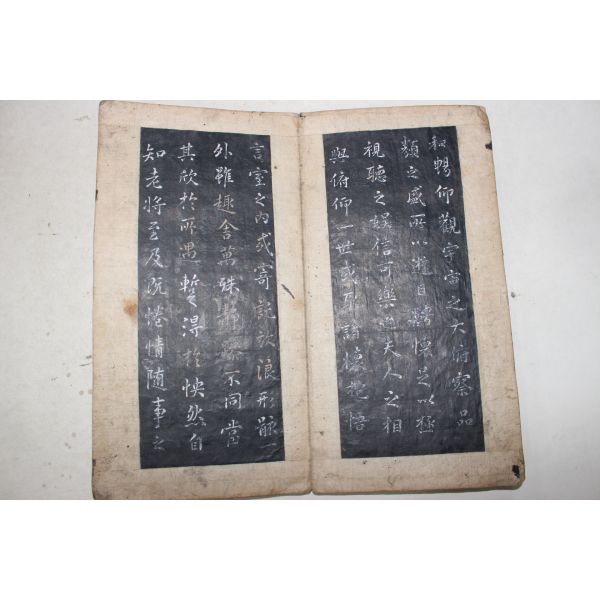 和暢仰觀宇宙之大俯察品
類之盛所以遊目騁懷足以極
視聽之娛信可樂也夫人之相
與俯仰一世或取諸懷抱悟
言室之內或寄託放浪形骸
外雖趣舍萬殊靜躁不同當
其欣於所遇暫得於怏然自
知老將至及既惓情隨事之